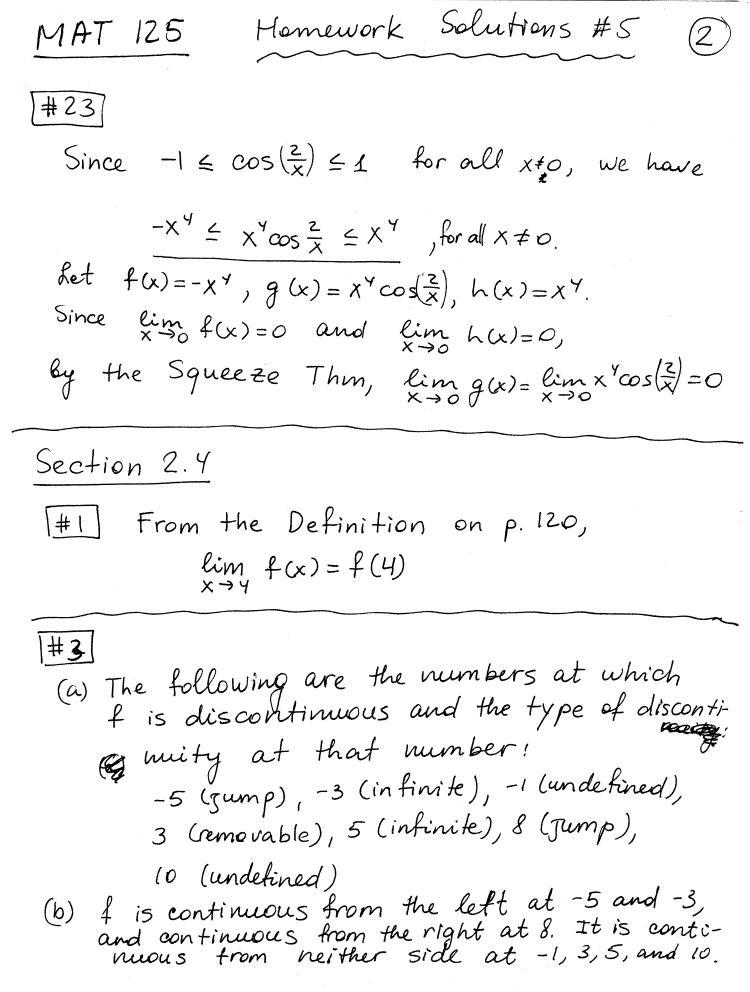 MAT 125 Homework Solutions #5 2
#23
Since -1 ≤ cos(2/x) ≤ 1 for all x≠0, we have
-x⁴ ≤ x⁴cos 2/x ≤ x⁴, for all x ≠ 0.
Let f(x)=-x⁴, g(x)=x⁴cos(2/x), h(x)=x⁴.
Since lim x→0 f(x)=0 and lim x→0 h(x)=0,
by the Squeeze Thm, lim x→0 g(x)= lim x→0 x⁴cos(2/x)=0
Section 2.4
#1 From the Definition on p. 120,
lim x→4 f(x)=f(4)
#3
(a) The following are the numbers at which
f is discontinuous and the type of disconti-
nuity at that number:
-5 (jump), -3 (infinite), -1 (undefined),
3 (removable), 5 (infinite), 8 (jump),
10 (undefined)
(b) f is continuous from the left at -5 and -3,
and continuous from the right at 8. It is conti-
nuous from neither side at -1, 3, 5, and 10.